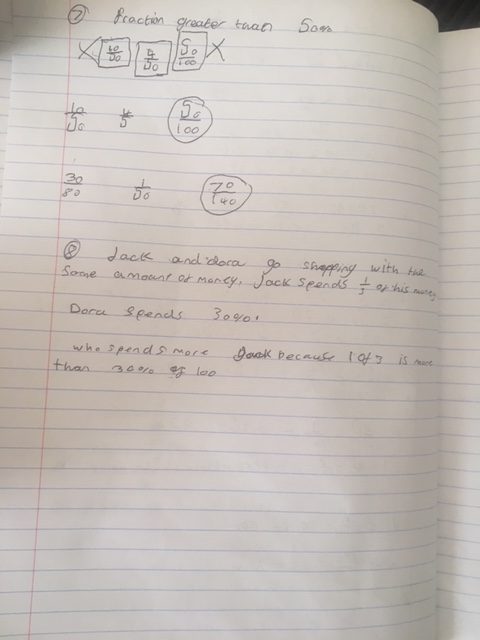 ⑦ Fraction greater than
10/50 4/50 50/100
10/50 4/5 50/100
30/80 1/50 70/140
⑧ Jack and dora go shopping with the
same amount of money, Jack spends 1/3 of his money
Dora spends 30%.
who spends more Jack because 1 of 3 is more
than 30% of 100